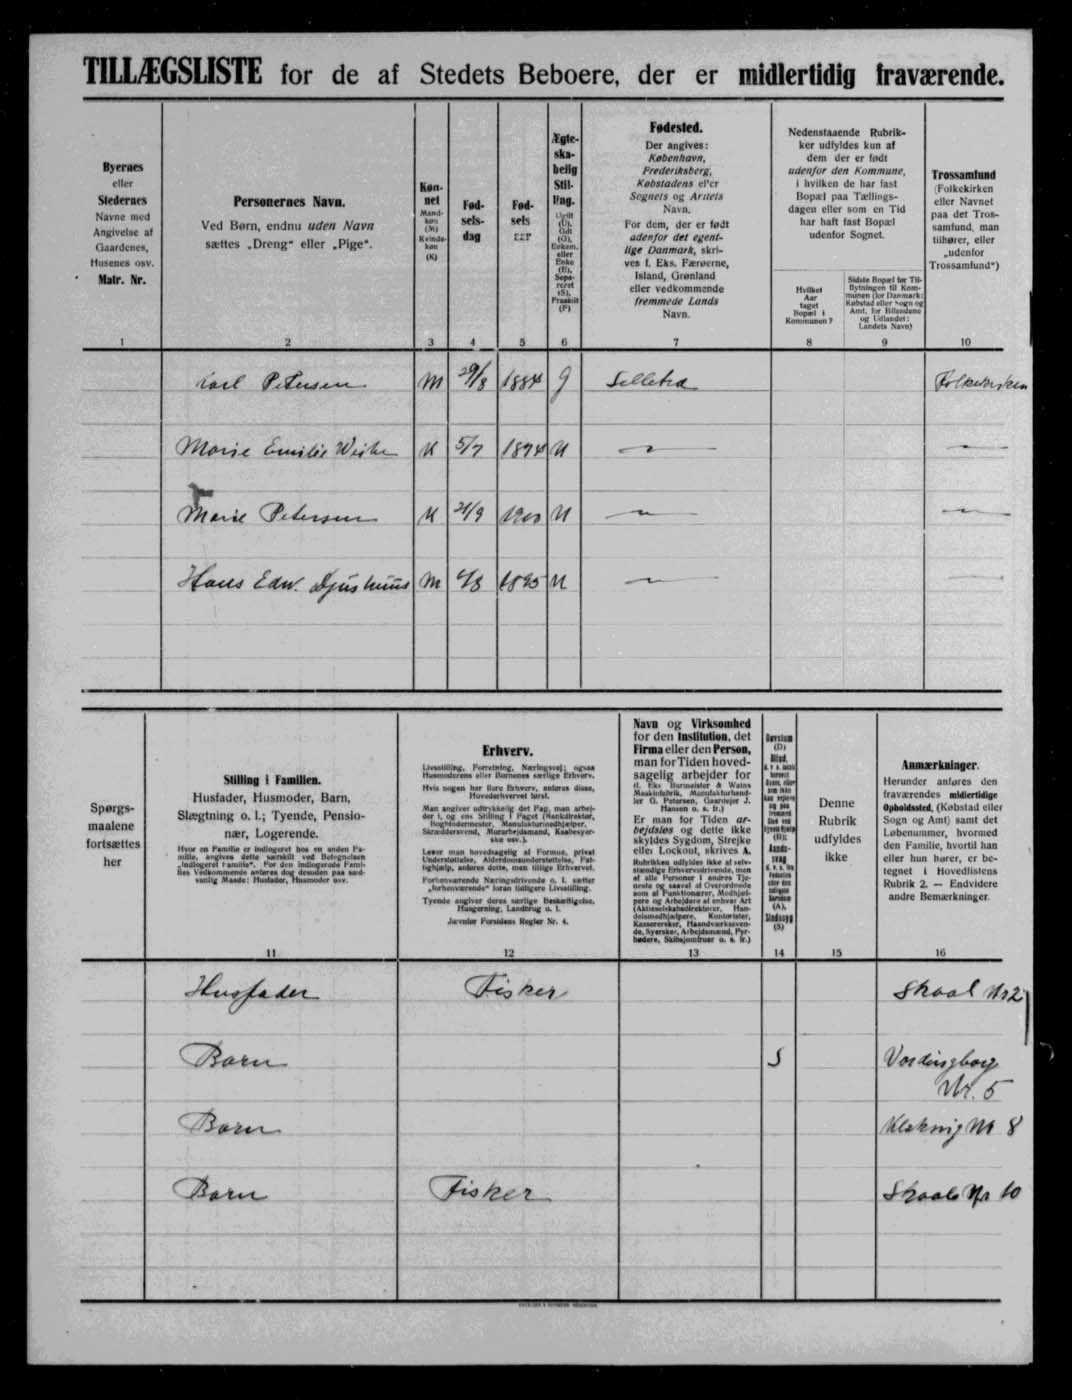 TILLÆGSLISTE for de af Stedets Beboere, der er midlertidig fraværende.
Byernes
eller
Stedernes
Navne med
Angivelse af
Gaardenes,
Husenes osv.
Matr. Nr.
Personernes Navn.
Ved Børn, endnu uden Navn
sættes „Dreng“ eller „Pige“.
Køn-
net
Mand-
køn
(M)
Kvinde-
køn
(K)
Fød-
sels-
dag
Fød-
sels
aar
Ægte-
ska-
belig
Stil-
ling.
Ugift
(U),
Gift
(G),
Enkem.
eller
Enke
(E),
Sepa-
reret
(S),
Fraskilt
(F)
Fødested.
Der angives:
København,
Frederiksberg,
Købstadens eller
Sognets og Amtets
Navn.
For dem, der er født
udenfor det egent-
lige Danmark, skri-
ves f. Eks. Færøerne,
Island, Grønland
eller vedkommende
fremmede Lands
Navn.
Nedenstaaende Rubrik-
ker udfyldes kun af
dem der er født
udenfor den Kommune,
i hvilken de har fast
Bopæl paa Tællings-
dagen eller som en Tid
har haft fast Bopæl
udenfor Sognet.
Hvilket
Aar
taget
Bopæl i
Kommunen?
Sidste Bopæl før Til-
flytningen til Kom-
munen (for Danmark:
Købstad eller Sogn og
Amt, for Bilandene
og Udlandet:
Landets Navn)
Trossamfund
(Folkekirken
eller Navnet
paa det Tros-
samfund, man
tilhører, eller
„udenfor
Trossamfund“)
1 2 3 4 5 6 7 8 9 10
Karl Petersen M 29/8 1884 G Selletræ Folkekirken
Marie Emilie K 5/7 1874 U — —
Marie Petersen K 21/9 1900 U — —
Hans Edw. Djurhuus M 6/8 1895 U —
Spørgs-
maalene
fortsættes
her
Stilling i Familien.
Husfader, Husmoder, Barn,
Slægtning o. l.; Tyende, Pensio-
nær, Logerende.
Hvor en Familie er indlogeret hos en anden Fa-
milie, angives dette særskilt ved Betegnelsen
„indlogeret Familie“. For den indlogerede Fami-
lies Vedkommende anføres dog desuden paa sæd-
vanlig Maade: Husfader, Husmoder osv.
Erhverv.
Livsstilling, Forretning, Næringsvej; ogsaa
Husmoderens eller Børnenes særlige Erhverv.
Hvis nogen har flere Erhverv, anføres disse,
Hovederhvervet først.
Man angiver udtrykkelig det Fag, man arbej-
der i, og ens Stilling i Faget (Bankdirektør,
Bogbindermester, Manufakturmedhjælper,
Skræddersvend, Murarbejdsmand, Kaabesyer-
ske osv.).
Lever man hovedsagelig af Formue, privat
Understøttelse, Alderdomsunderstøttelse, Fat-
tighjælp, anføres dette, men tillige Erhvervet.
Forhenværende Næringsdrivende o. l. sætter
„forhenværende“ foran tidligere Livsstilling.
Tyende angiver deres særlige Beskæftigelse,
Husgerning, Landbrug o. l.
Jævnfør Forsidens Regler Nr. 4.
Navn og Virksomhed
for den Institution, det
Firma eller den Person,
man for Tiden hoved-
sagelig arbejder for
(f. Eks Burmeister & Wains
Maskinfabrik, Manufakturhand-
ler G. Petersen, Gaardejer J.
Hansen o. s. fr.)
Er man for Tiden ar-
bejdsløs og dette ikke
skyldes Sygdom, Strejke
eller Lockout, skrives A.
Rubrikken udfyldes ikke af selv-
stændige Erhvervsdrivende, men
af alle Personer i andres Tje-
neste og saavel af Overordnede
som af Funktionærer, Medhjæl-
pere og Arbejdere af enhver Art
(Aktieselskabsdirektører, Han-
delsmedhjælpere, Kontorister,
Kasserersker, Haandværkssven-
de, Syersker, Arbejdsmænd, Fyr-
bødere, Skibsjomfruer o. s. fr.)
Døvstum
(D)
Blind,
(B);
Aands-
svag
(A),
Sindssyg
(S)
Denne
Rubrik
udfyldes
ikke
Anmærkninger.
Herunder anføres den
fraværendes midlertidige
Opholdssted, (Købstad eller
Sogn og Amt) samt det
Løbenummer, hvormed
den Familie, hvortil han
eller hun hører, er be-
tegnet i Hovedlistens
Rubrik 2. — Endvidere
andre Bemærkninger.
11 12 13 14 15 16
Husfader Fisker Skaal Nr 2
Barn S Vordingborg
Nr. 5
Barn Klaksvig Nr 8
Barn Fisker Skaale Nr 10